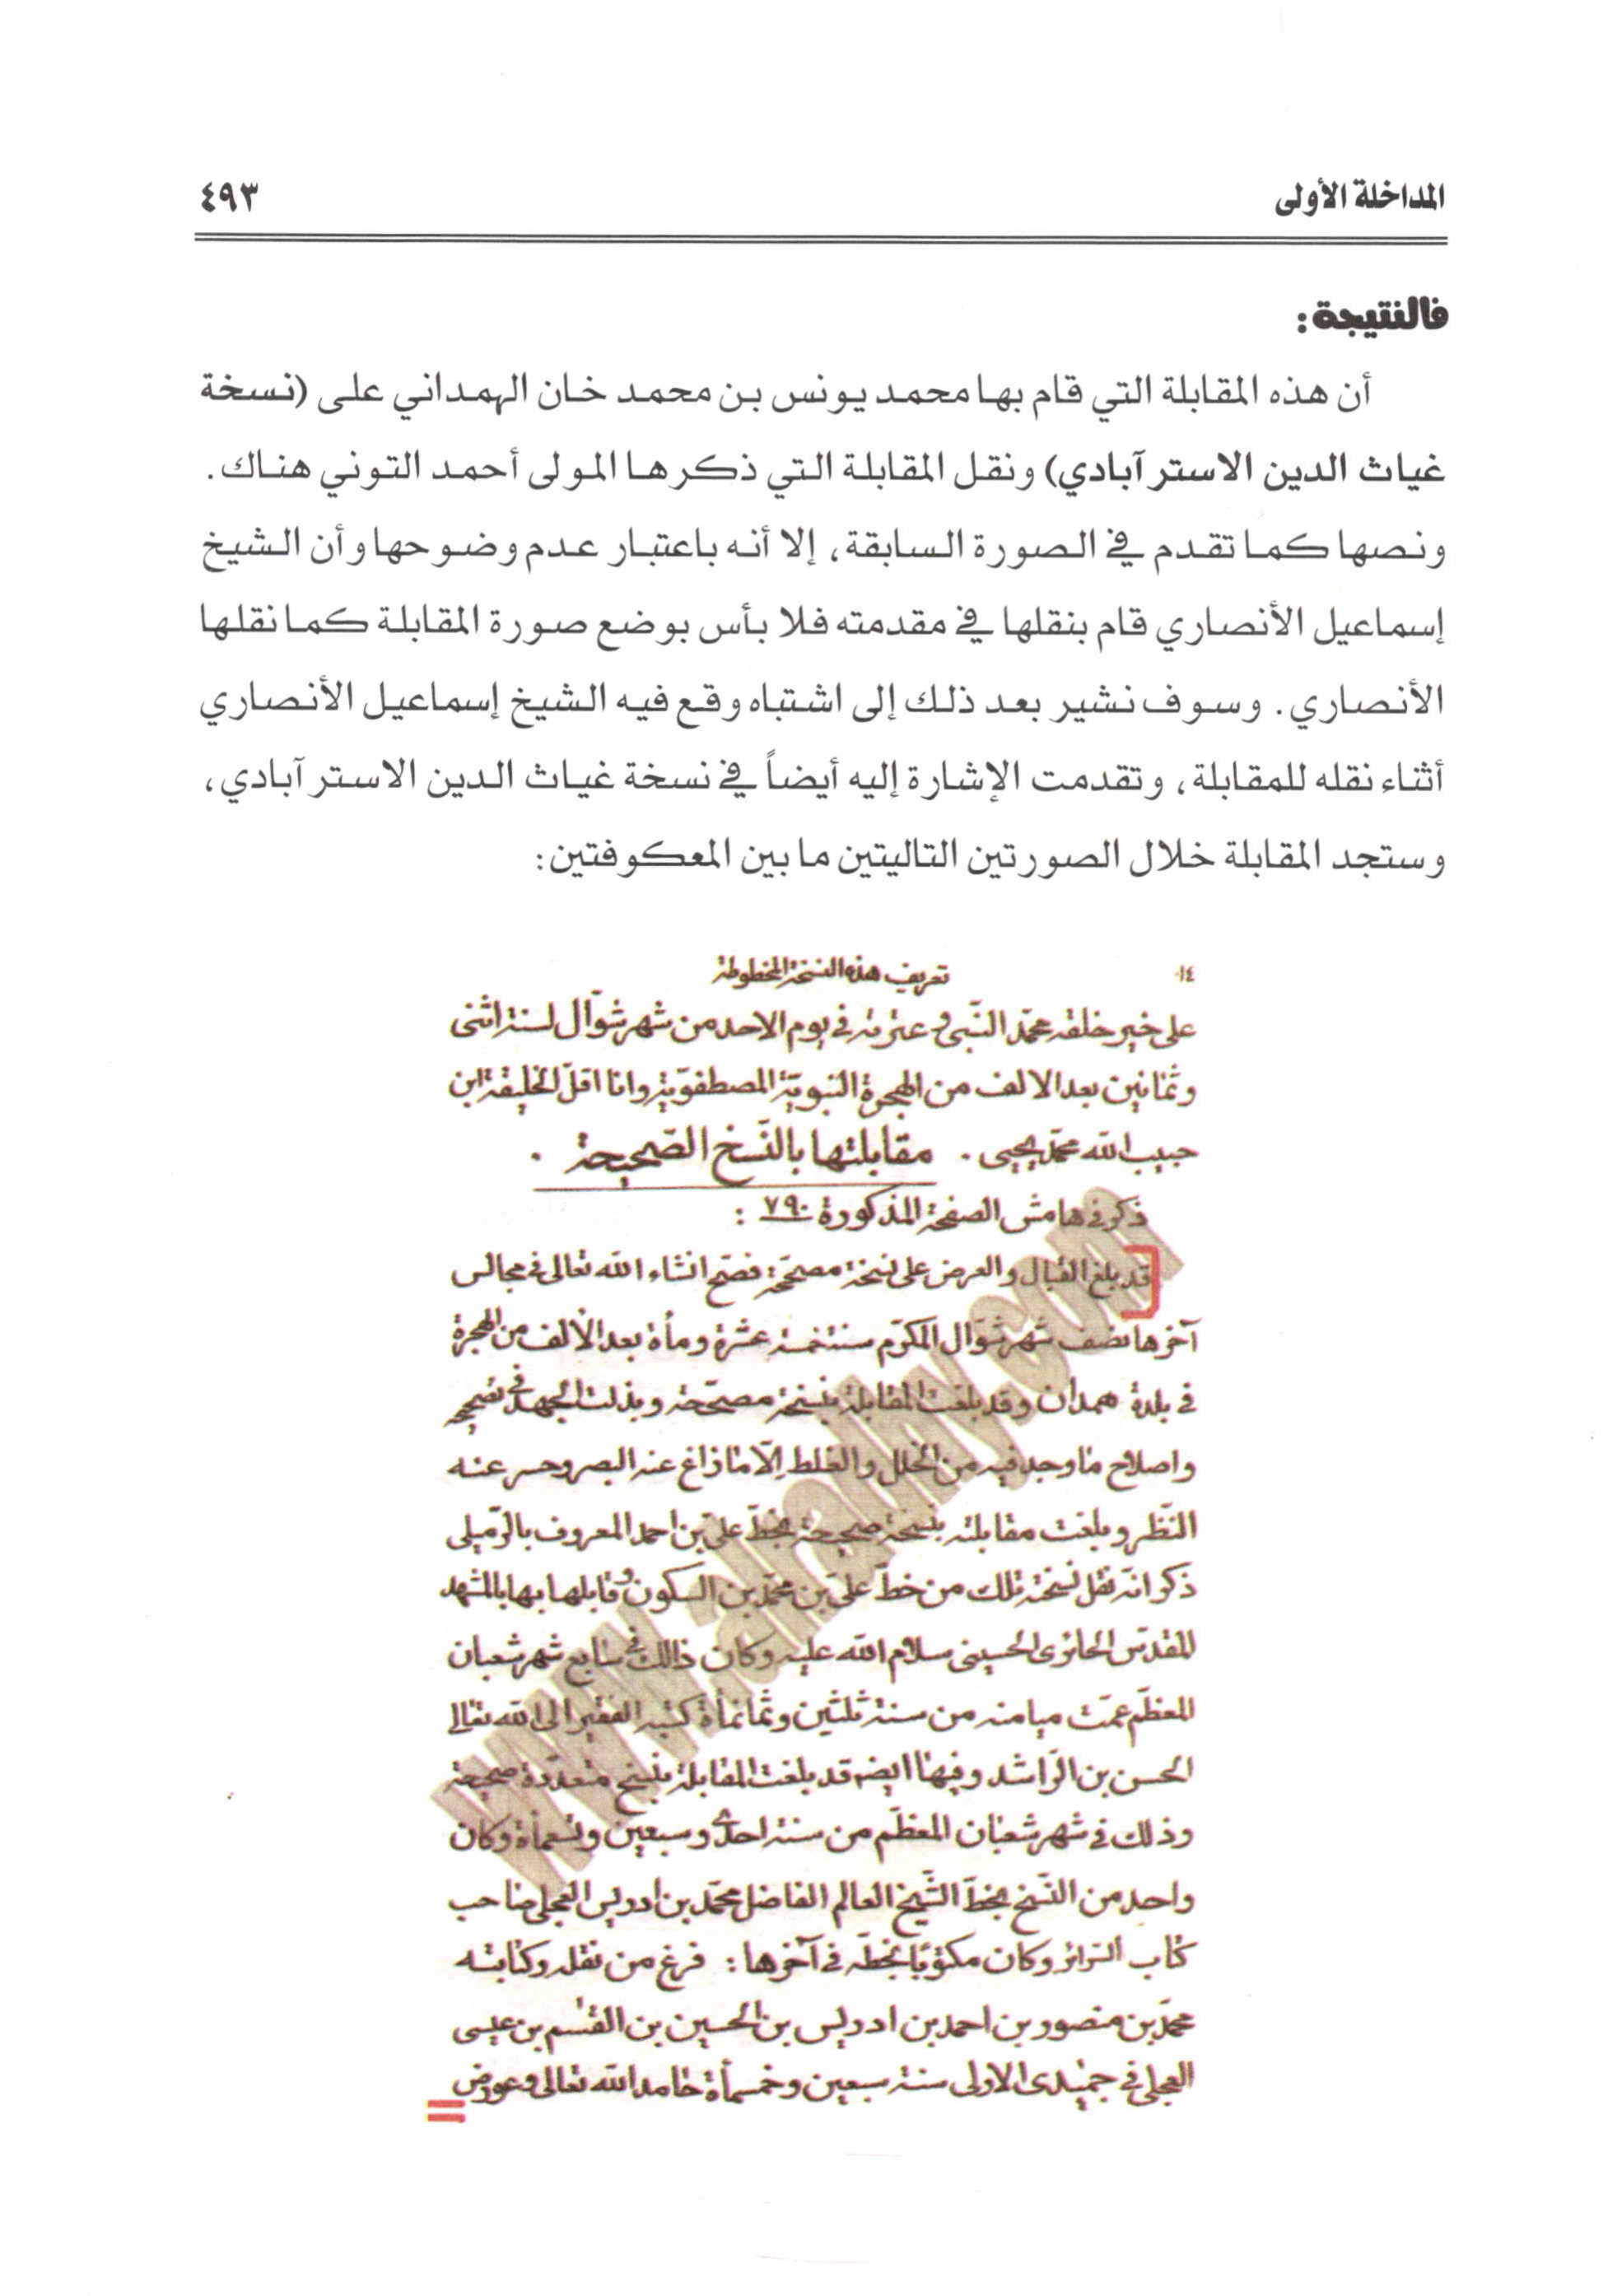 المداخلة الأولى ٤٩٣
فالنتيجة:
أن هذه المقابلة التي قام بها محمد يونس بن محمد خان الهمداني على (نسخة
غياث الدين الاسترآبادي) ونقل المقابلة التي ذكرها المولى أحمد التوني هناك.
ونصها كما تقدم في الصورة السابقة، إلا أنه باعتبار عدم وضوحها وأن الشيخ
إسماعيل الأنصاري قام بنقلها في مقدمته فلا بأس بوضع صورة المقابلة كما نقلها
الأنصاري. وسوف نشير بعد ذلك إلى اشتباه وقع فيه الشيخ إسماعيل الأنصاري
أثناء نقله للمقابلة، وتقدمت الإشارة إليه أيضاً في نسخة غياث الدين الاسترآبادي،
وستجد المقابلة خلال الصورتين التاليتين ما بين المعكوفتين:
١٤ تعريف هذه النسخة المخطوطة
على خير خلقه محمّد النّبىّ و عترته فى يوم الاحد من شهر شوّال لسنة اثنى
وثمانين بعد الالف من الهجرة النبويّة المصطفويّة وانا اقلّ الخليقة ابن
حبيب الله محمّد يحيى . مقابلتها بالنّسخ الصّحيحة .
ذكر فى هامش الصفحة المذكورة ٧٩٠ :
[قد بلغ القبال والعرض على نسخة مصحّحة فصحّ انشاء الله تعالى فى مجالس
آخرها نصف شهر شوّال المكرّم سنة خمسة عشرة ومأة بعد الألف من الهجرة
فى بلدة همدان وقد بلغت المقابلة بنسخة مصحّحة وبذلت الجهد فى تصحيحه
واصلاح ما وجد فيه من الخلل والغلط إلّا ما زاغ عنه البصر وحسر عنه
النّظر وبلغت مقابلته بنسخة صحيحة بخطّ علىّ بن احمد المعروف بالرّميلى
ذكر انّه نقل نسخته تلك من خطّ علىّ بن محمّد بن السكون وقابلها بها بالمشهد
المقدّس الحائرى الحسينى سلام الله عليه وكان ذالك فى سابع شهر شعبان
المعظّم عمّت ميامنه من سنة ثلثين وثمانمأة كتبه الفقير الى الله تعالى
الحسن بن الرّاشد وفيها ايضه قد بلغت المقابلة بنسخ متعدّدة صحيحة
وذلك فى شهر شعبان المعظّم من سنة احدى وسبعين وتسعمأة وكان
واحد من النّسخ بخطّ الشّيخ العالم الفاضل محمّد بن ادريس العجلى صاحب
كتاب السّرائر وكان مكتوبًا بخطّه فى آخرها : فرغ من نقله وكتابته
محمّد بن منصور بن احمد بن ادريس بن الحسين بن القسم بن عيسى
العجلى فى جميدى الاولى سنة سبعين وخمسمأة حامدا لله تعالى وعورض
www.alradhy.com